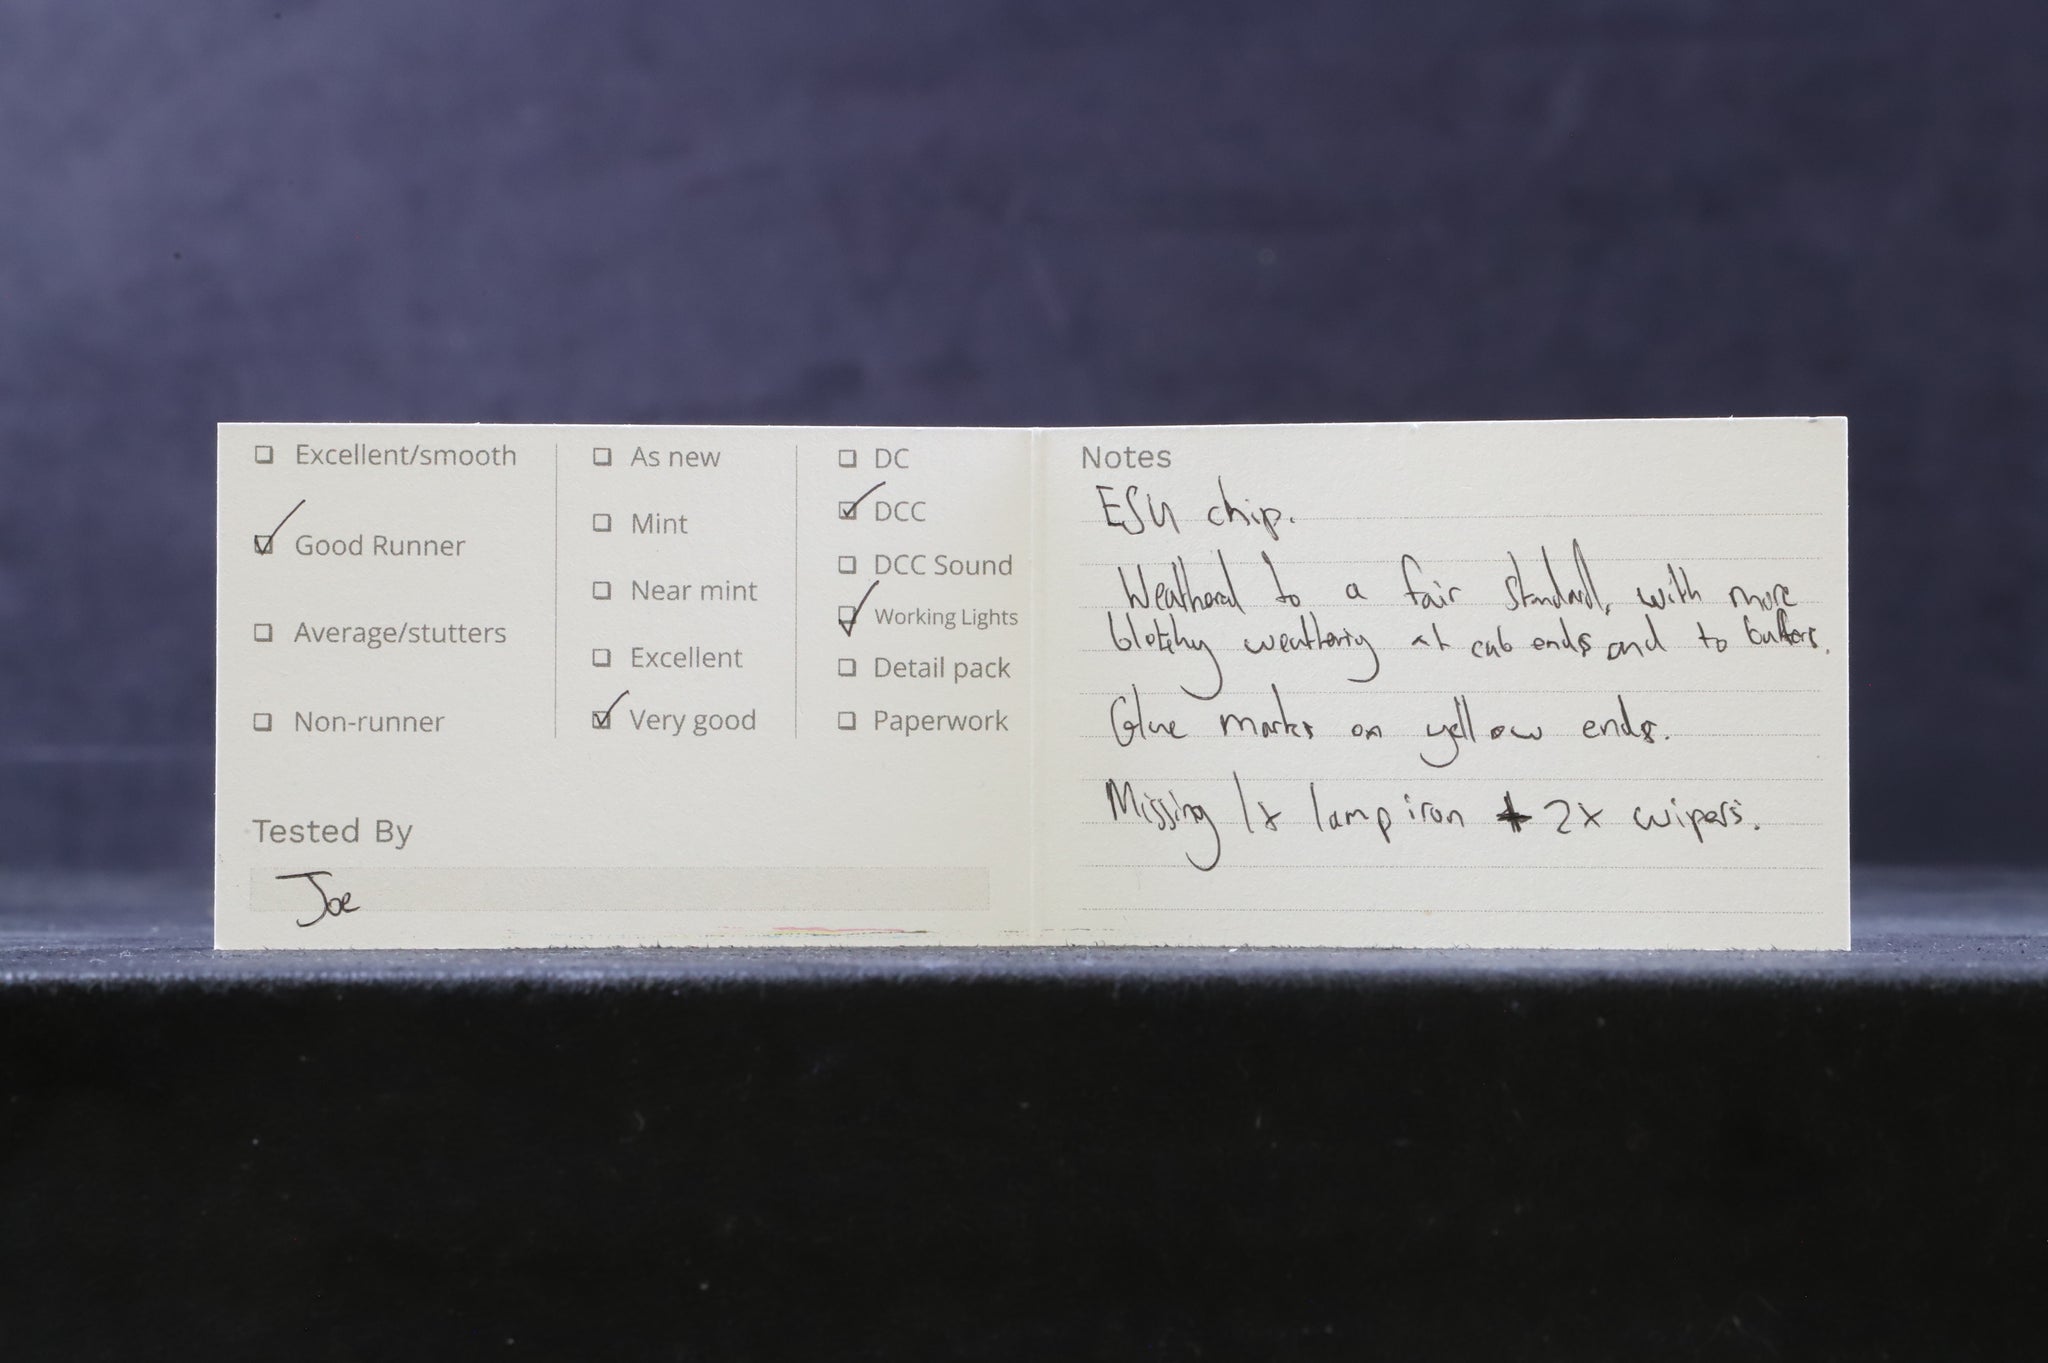 Excellent/smooth
Good Runner
Average/stutters
Non-runner
As new
Mint
Near mint
Excellent
Very good
DC
DCC
DCC Sound
Working Lights
Detail pack
Paperwork
Tested By
Joe
Notes
ESU chip.
Weathered to a fair standard, with more
blotchy weathering at cab ends and to buffers.
Glue marks on yellow ends.
Missing 1x lamp iron + 2x wipers.